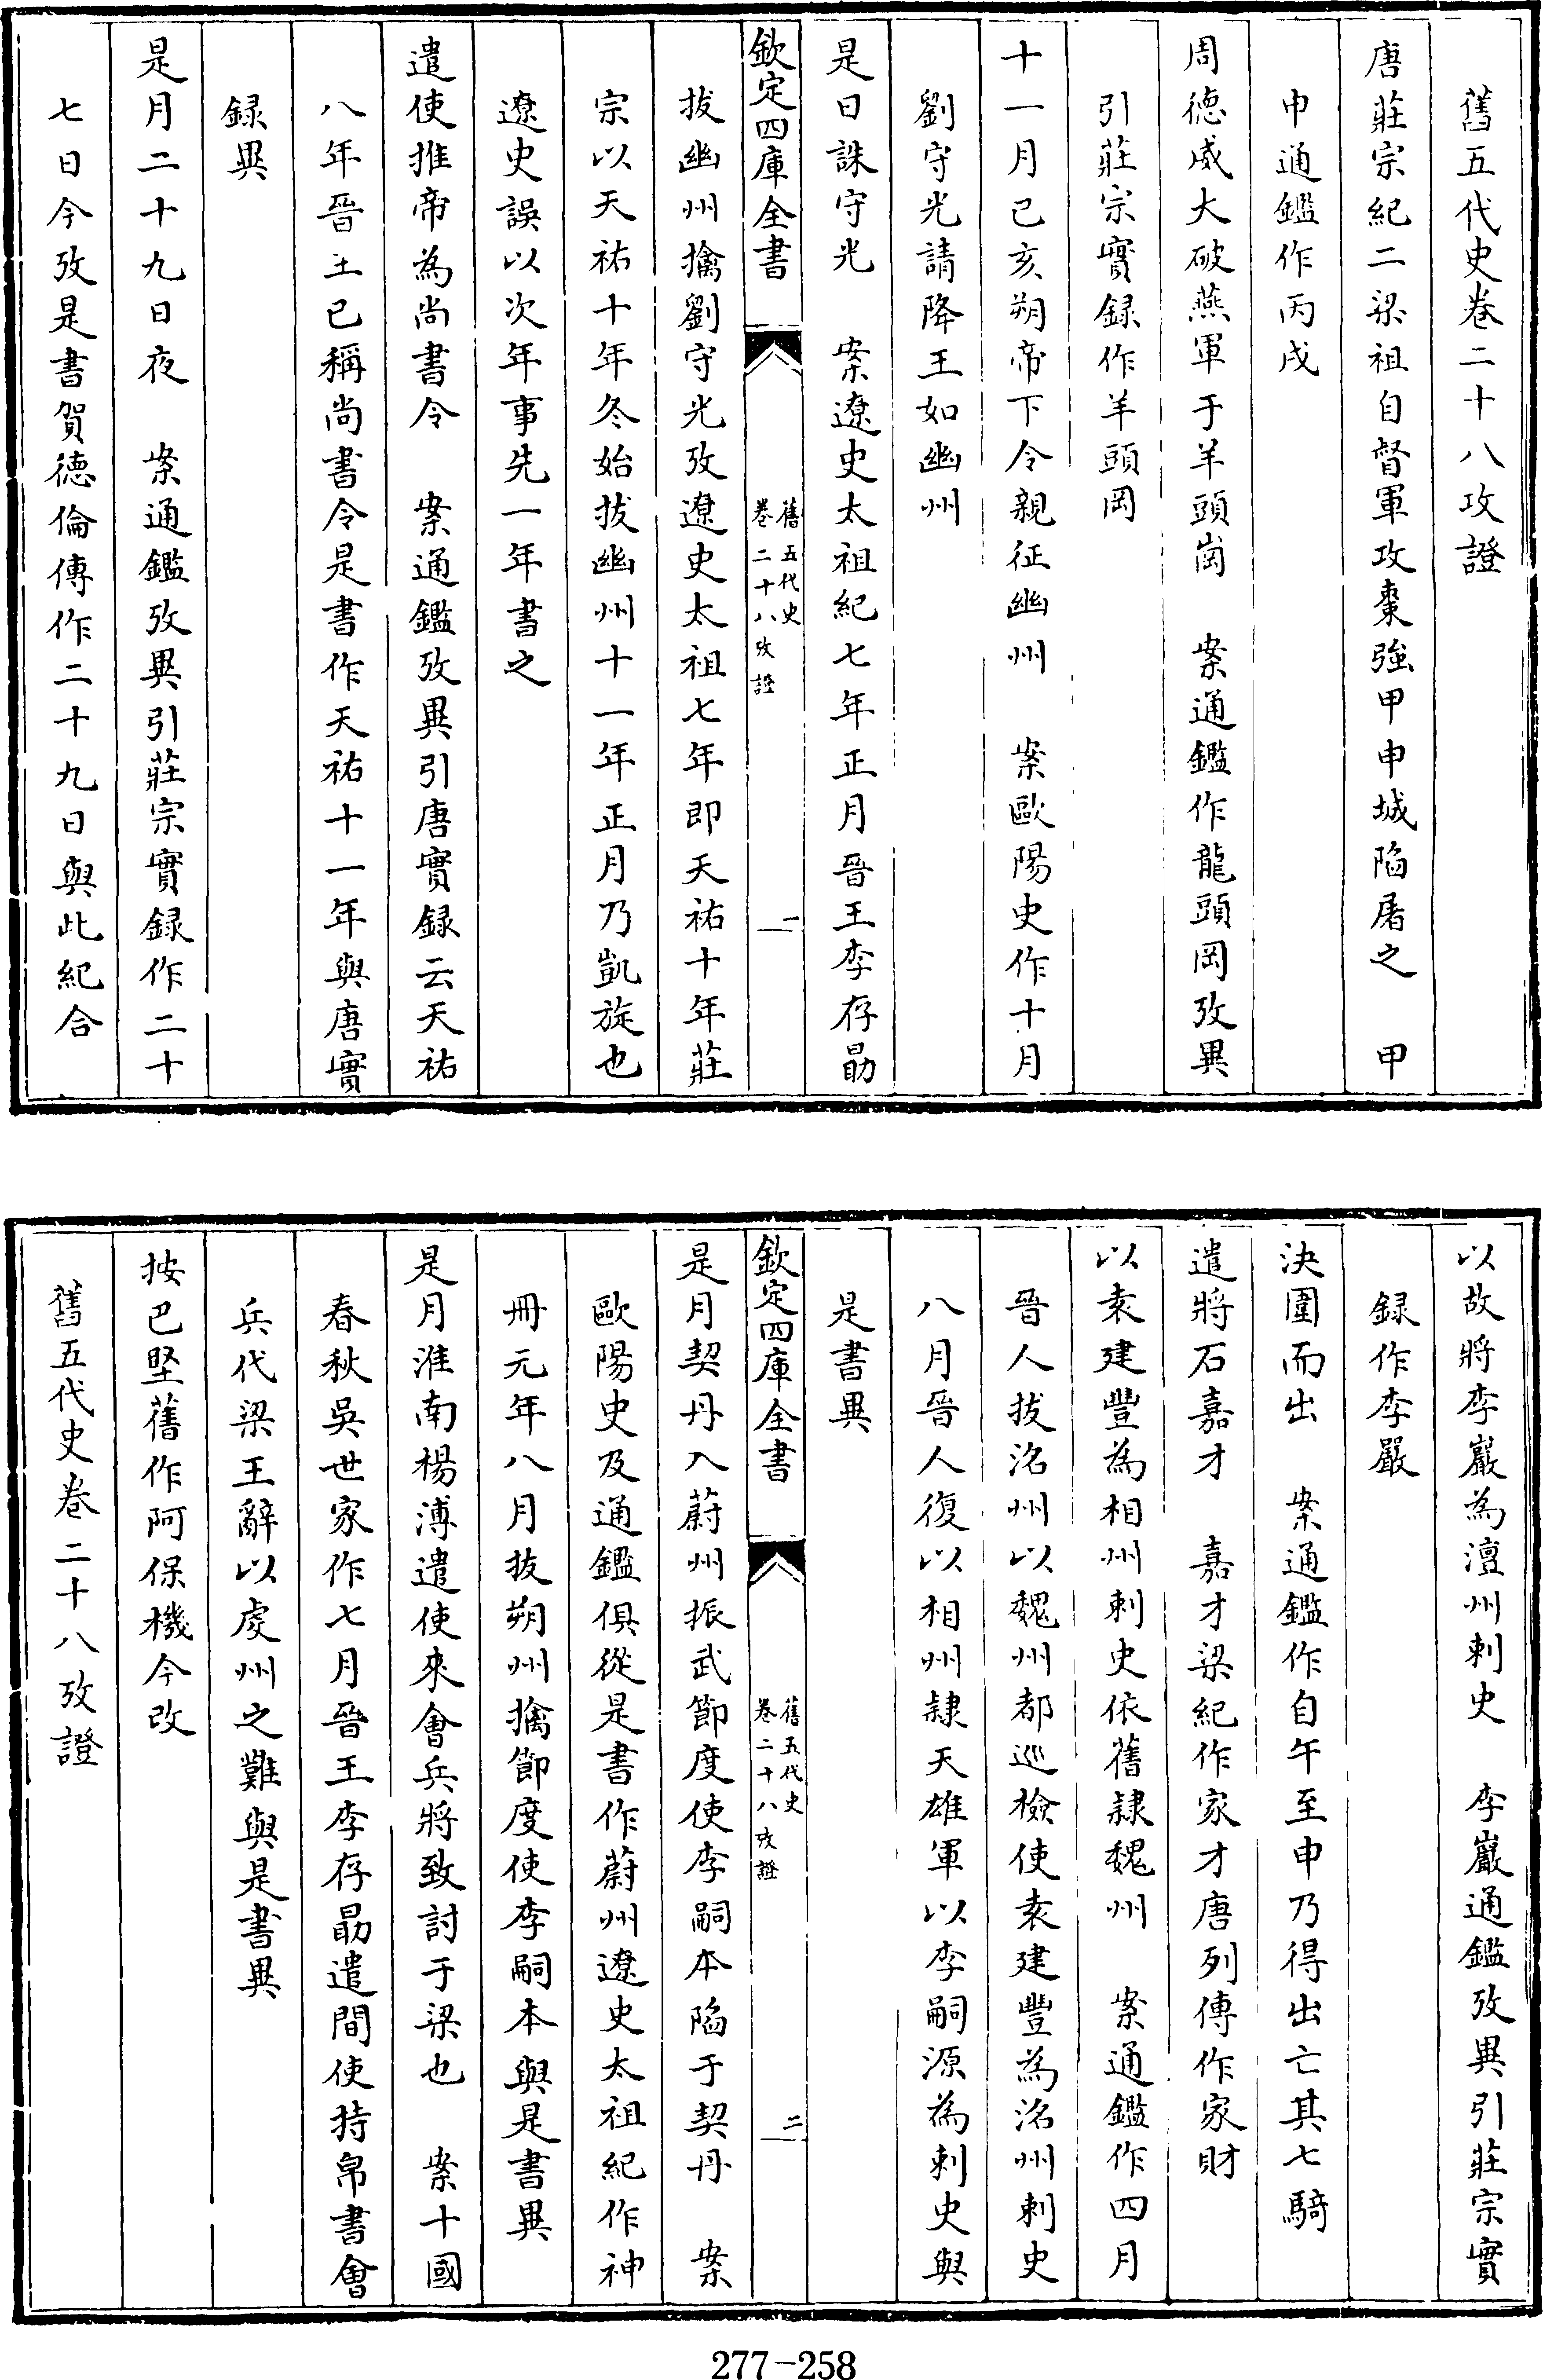 舊五代史卷二十八攷證
唐莊宗紀二梁祖自督軍攻棗強甲申城陷屠之　甲
申通鑑作丙戌
周德威大破燕軍于羊頭崗　案通鑑作龍頭岡攷異
引莊宗實録作羊頭岡
十一月己亥朔帝下令親征幽州　案歐陽史作十月
劉守光請降王如幽州
是日誅守光　案遼史太祖紀七年正月晉王李存勗
欽定四庫全書
舊五代史
卷二十八攷證
一
拔幽州擒劉守光攷遼史太祖七年即天祐十年莊
宗以天祐十年冬始拔幽州十一年正月乃凱旋也
遼史誤以次年事先一年書之
遣使推帝為尚書令　案通鑑攷異引唐實録云天祐
八年晉王已稱尚書令是書作天祐十一年與唐實
録異
是月二十九日夜　案通鑑攷異引莊宗實録作二十
七日今攷是書賀德倫傳作二十九日與此紀合
以故將李巖為澶州刺史　李巖通鑑攷異引莊宗實
録作李嚴
決圍而出　案通鑑作自午至申乃得出亡其七騎
遣將石嘉才　嘉才梁紀作家才唐列傳作家財
以袁建豐為相州刺史依舊隸魏州　案通鑑作四月
晉人拔洺州以魏州都巡檢使袁建豐為洺州刺史
八月晉人復以相州隸天雄軍以李嗣源為刺史與
是書異
欽定四庫全書
舊五代史
卷二十八攷證
二
是月契丹入蔚州振武節度使李嗣本陷于契丹　案
歐陽史及通鑑俱從是書作蔚州遼史太祖紀作神
冊元年八月拔朔州擒節度使李嗣本與是書異
是月淮南楊溥遣使來會兵將致討于梁也　案十國
春秋吳世家作七月晉王李存勗遣間使持帛書會
兵代梁王辭以虔州之難與是書異
按巴堅舊作阿保機今改
舊五代史卷二十八攷證
277-258